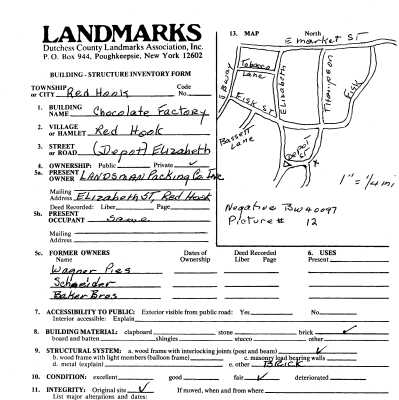 LANDMARKS
Dutchess County Landmarks Association, Inc.
P. O. Box 944, Poughkeepsie, New York 12602
BUILDING - STRUCTURE INVENTORY FORM
TOWNSHIP or CITY Red Hook Code No.
1. BUILDING NAME Chocolate Factory
2. VILLAGE or HAMLET Red Hook
3. STREET or ROAD (Depot) Elizabeth
4. OWNERSHIP: Public Private ✓
5a. PRESENT OWNER LANDSMAN Packing Co. Inc
Mailing Address Elizabeth ST, Red Hook
Deed Recorded: Liber Page
5b. PRESENT OCCUPANT same
Mailing Address
13. MAP North
E market ST
S Bway
Tobacco Lane
Elizabeth
Thompson
Fisk
Fisk ST
Bassett Lane
Depot
1" = 1/4 mi
Negative BW40097
Picture # 12
5c. FORMER OWNERS Dates of Deed Recorded 6. USES
Name Ownership Liber Page Present
Wagner Pies
Schneider
Baker Bros
7. ACCESSIBILITY TO PUBLIC: Exterior visible from public road: Yes No
Interior accessible: Explain
8. BUILDING MATERIAL: clapboard stone brick ✓
board and batten shingles stucco other
9. STRUCTURAL SYSTEM: a. wood frame with interlocking joints (post and beam) ✓
b. wood frame with light members (balloon frame) c. masonry load bearing walls
d. metal (explain) e. other Brick
10. CONDITION: excellent good fair ✓ deteriorated
11. INTEGRITY: Original site ✓ If moved, when and from where
List major alterations and dates: